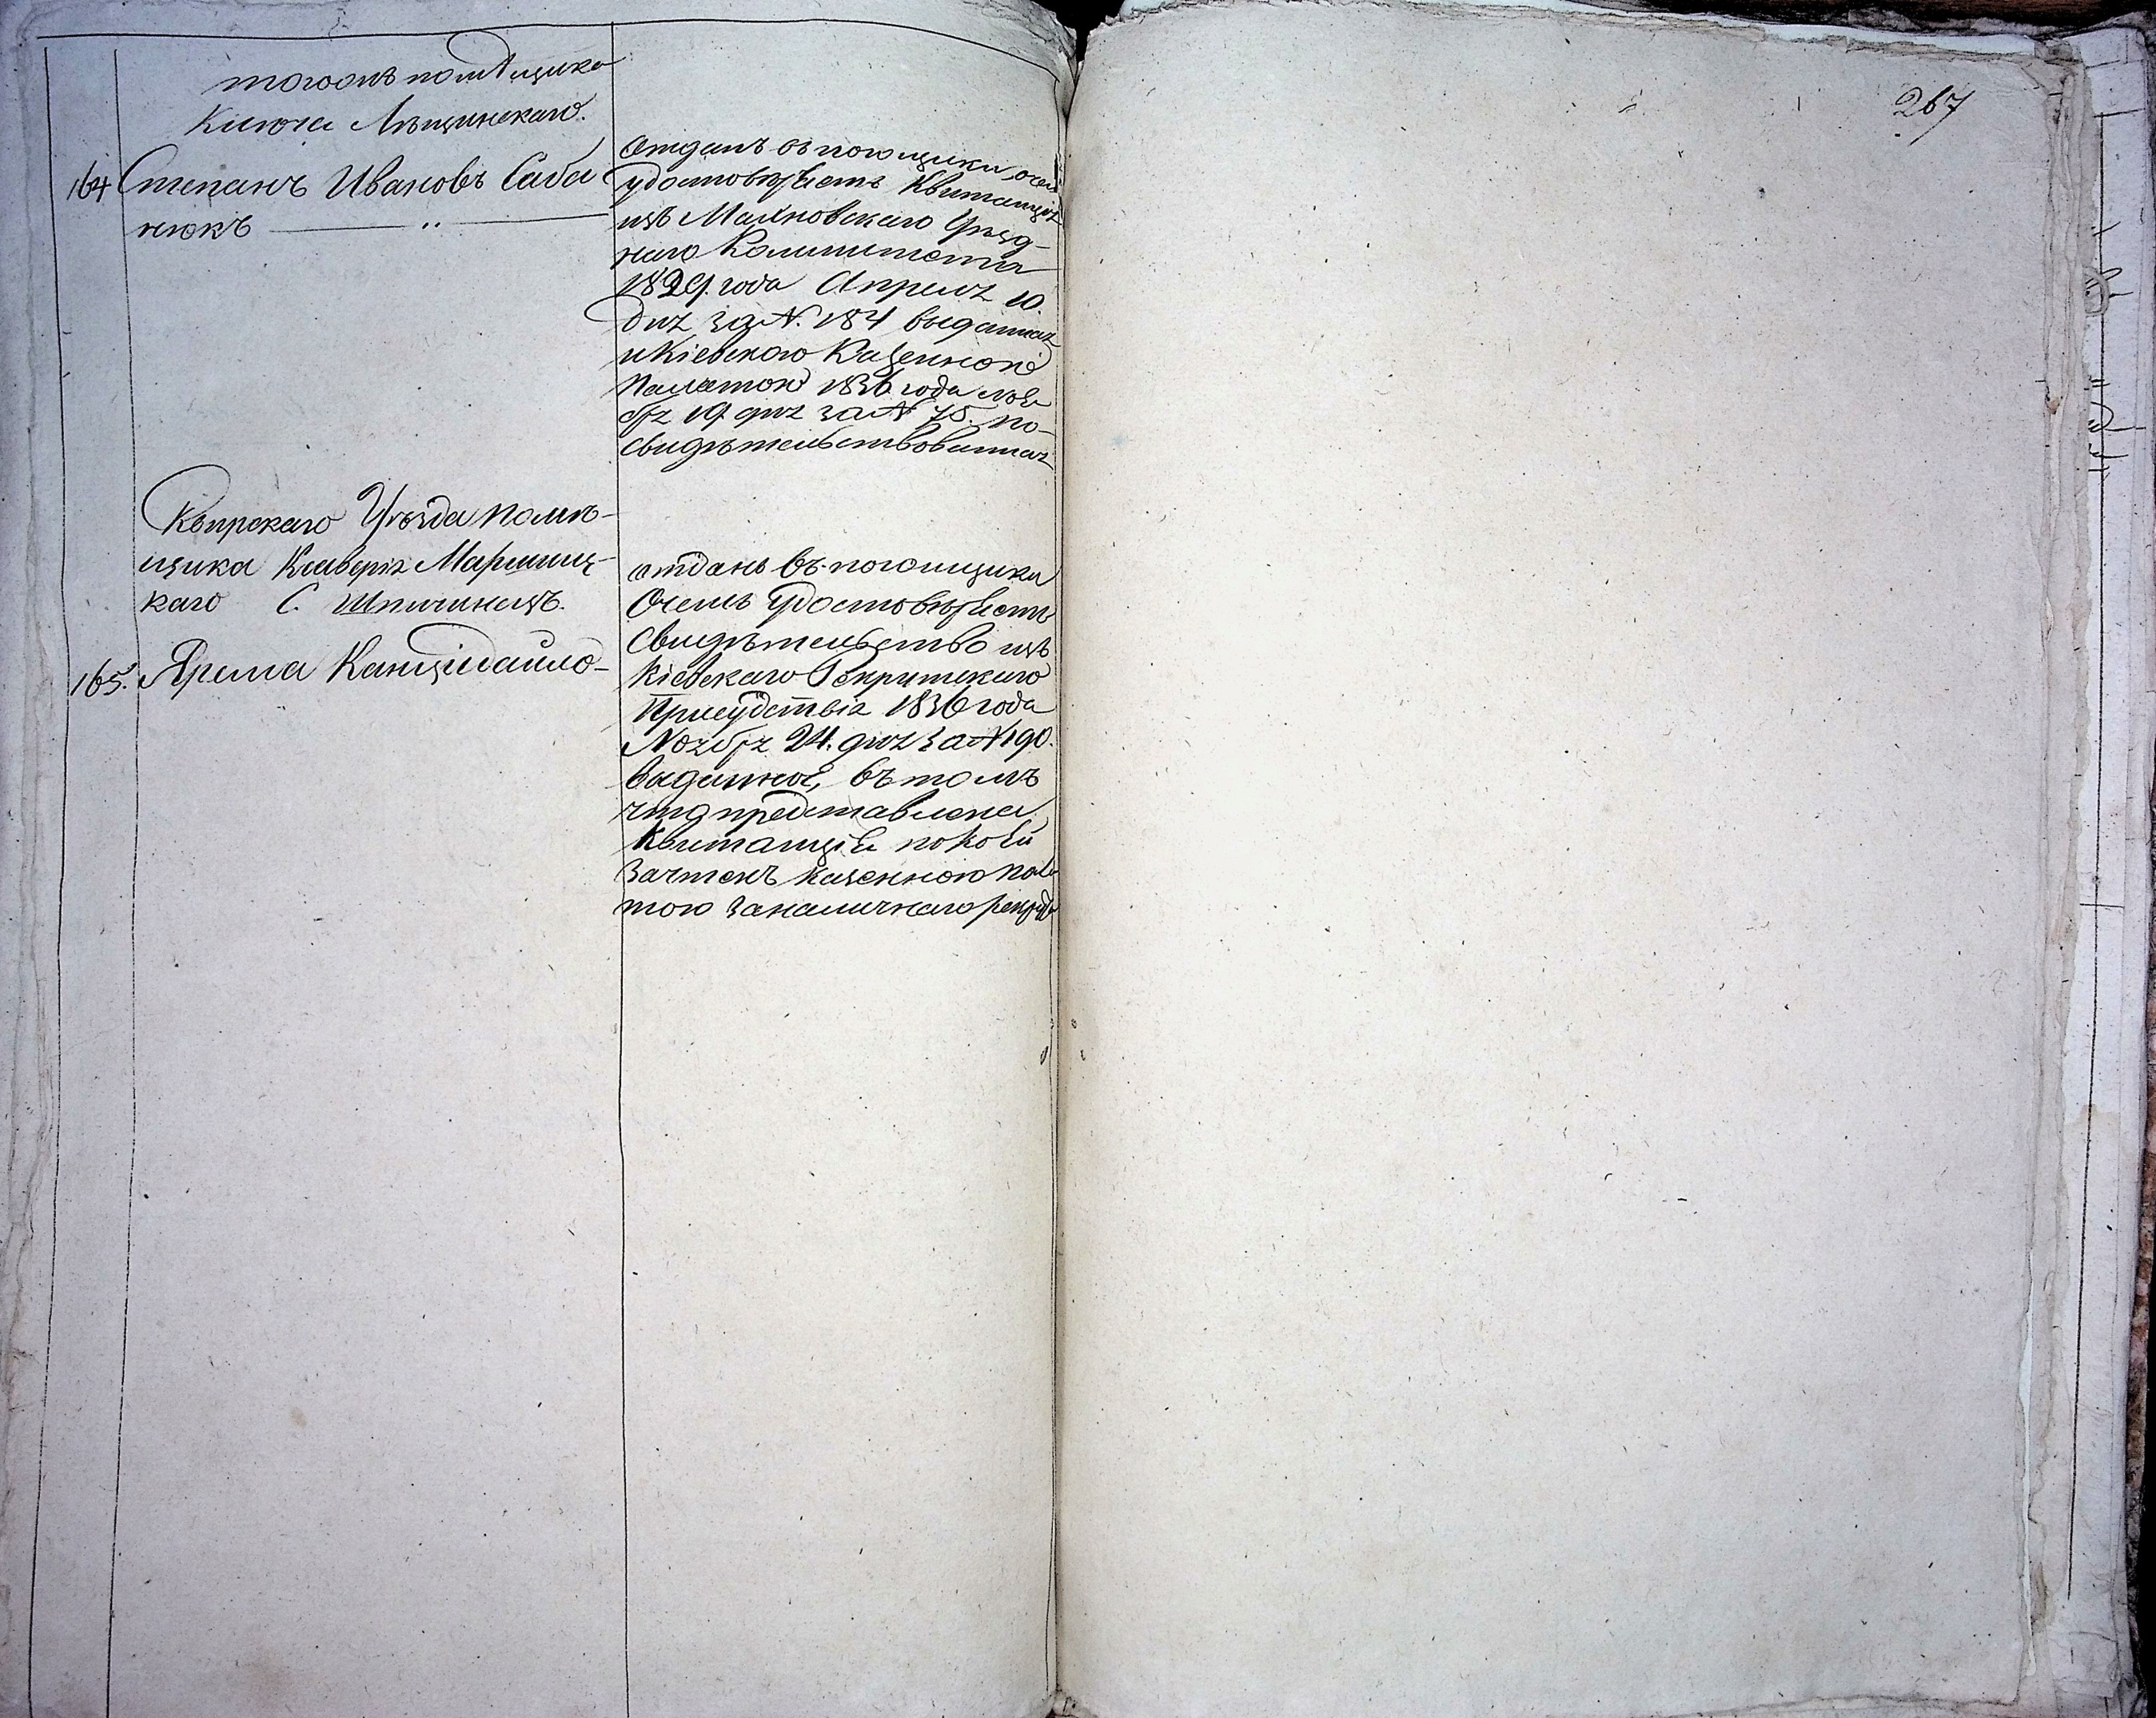 тогожъ помѣщика
Князя Лѣщинскаго.
164 Степанъ Ивановъ Саба
нюкъ
отданъ въ погонщики, очемъ
удостовѣряетъ Квитанція
изъ Махновскаго Уѣзд-
наго Комитета
1829 года Апреля 10
дня за N. 184 выданная
и Кіевскою Казенною
Палатою 1836 года
19 дня за N 75. по-
свидѣтельствованная
Уѣзда помѣ-
щика Ксаверія
каго С. Шпичинецъ.
165. Ярема
отданъ въ погонщики
Очемъ Удостовѣряетъ
Свидѣтельство изъ
Кіевскаго Рекрутскаго
Присудствія 1836 года
Ноября 24. дня за N 190.
выданное, въ томъ
что представлена
Квитанція по коей
Зачтенъ казенною пала
тою за наличнаго рекрута
267